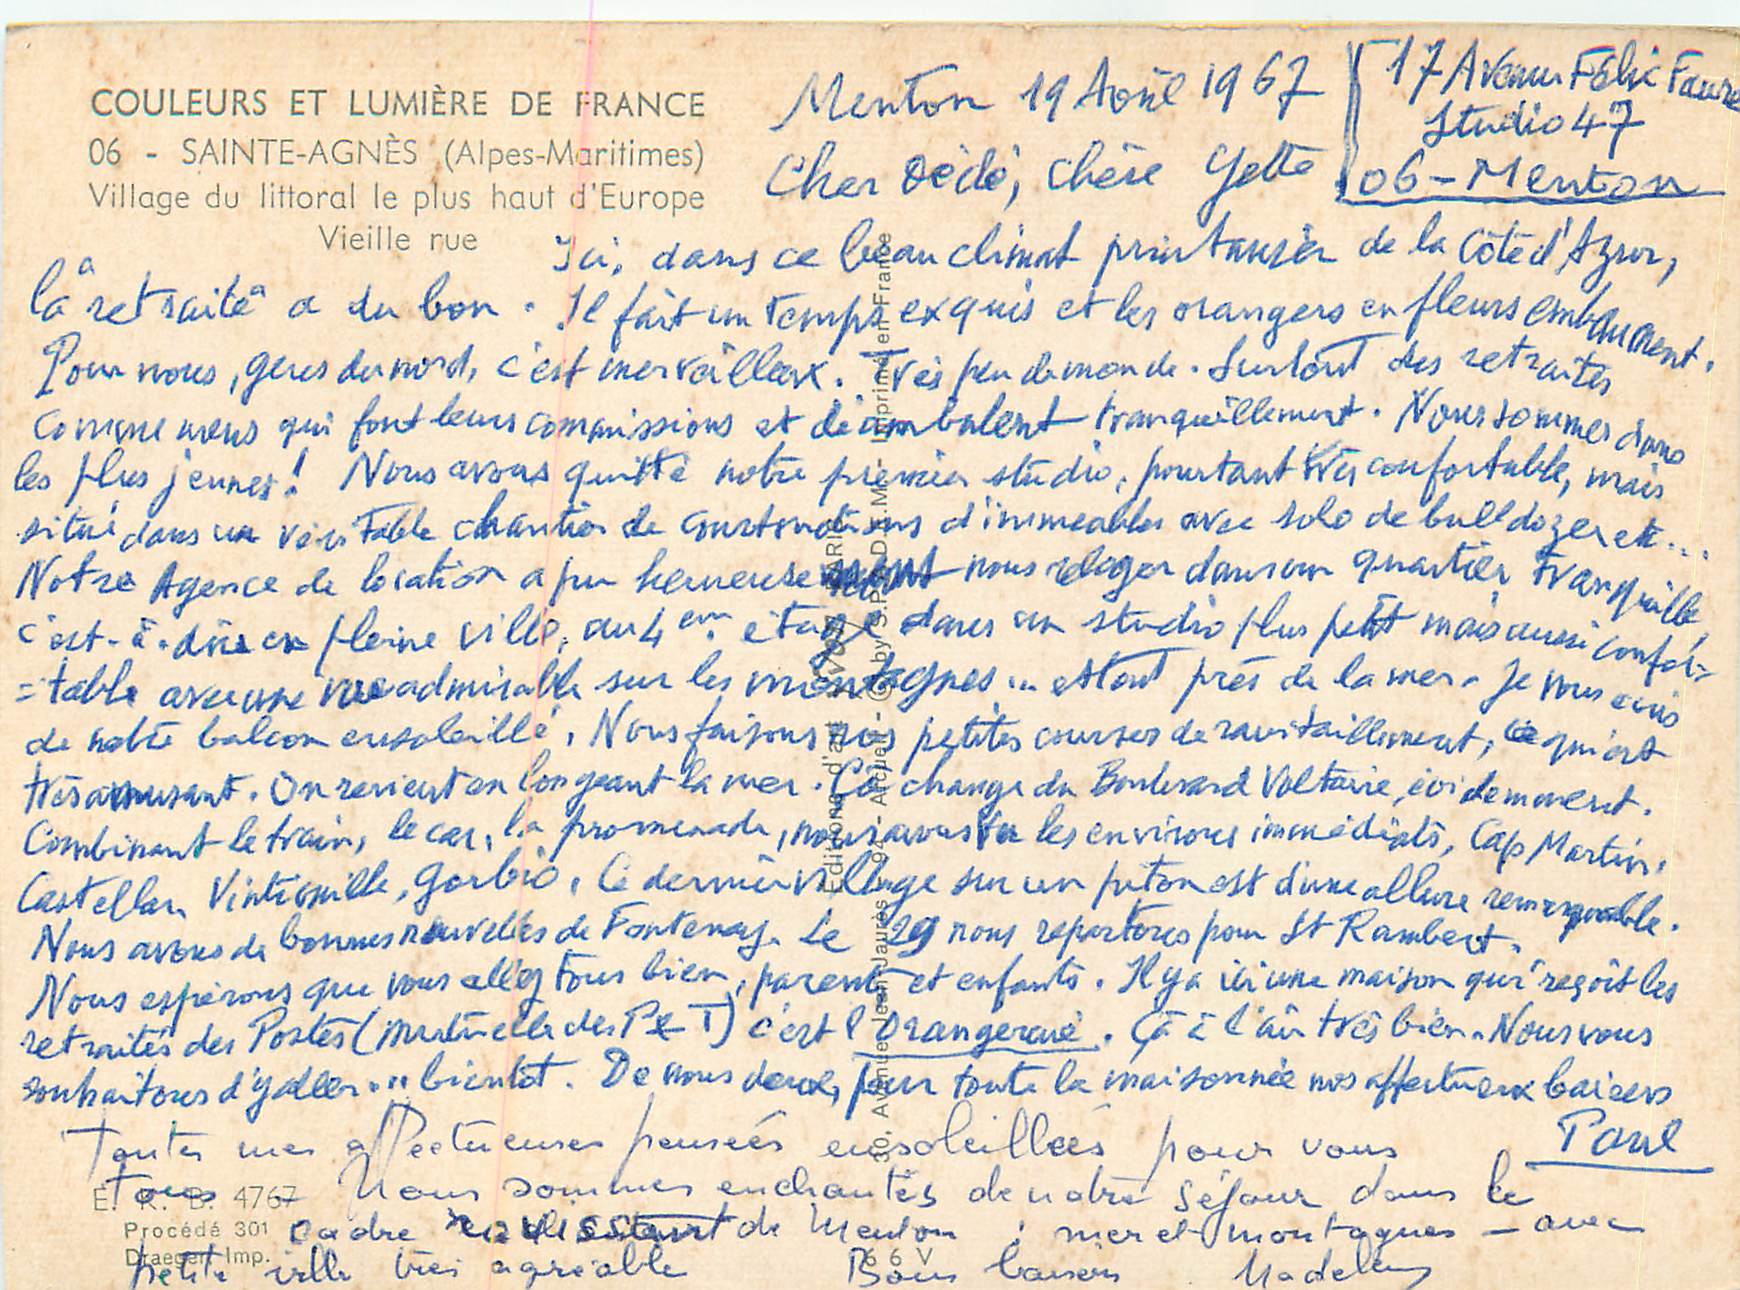 COULEURS ET LUMIÈRE DE FRANCE
06 - SAINTE-AGNÈS (Alpes-Maritimes)
Village du littoral le plus haut d'Europe
Vieille rue
Menton 19 Avril 1967
17 Avenue Félix Faure
Studio 47
06 - Menton
Cher Dédé, chère Yette
Ici, dans ce beau climat printanier de la Côte d'Azur,
la "retraite" a du bon. Il fait un temps exquis et les orangers en fleurs embaument.
Pour nous, gens du nord, c'est merveilleux. Très peu de monde. Surtout des retraités
comme nous qui font leurs commissions et déambulent tranquillement. Nous sommes dans
les plus jeunes! Nous avons quitté notre premier studio, pourtant très confortable, mais
situé dans un véritable chantier de constructions d'immeubles avec solo de bulldozer etc...
Notre Agence de location a pu heureusement nous reloger dans un quartier tranquille
c'est-à-dire en pleine ville, au 4em étage dans un studio plus petit mais aussi confor-
=table avec une vue admirable sur les montagnes... et tout près de la mer. Je vous écris
de notre balcon ensoleillé. Nous faisons nos petites courses de ravitaillement, ce qui est
très amusant. On revient en longeant la mer. Çà change du Boulevard Voltaire, évidemment.
Combinant le train, le car, la promenade, nous avons vu les environs immédiats, Cap Martin,
Castellar, Vintimille, Gorbio. Ce dernier village sur un piton est d'une allure remarquable.
Nous avons de bonnes nouvelles de Fontenay. Le 29 nous repartons pour St Rambert.
Nous espérons que vous allez tous bien, parents et enfants. Il y a ici une maison qui reçoit les
retraités des Postes (mutuelle des P et T) c'est l'Orangeraie. Çà à l'air très bien. Nous vous
souhaitons d'y aller... bientôt. De nous deux, pour toute la maisonnée nos affectueux baisers
Paul
Toutes mes affectueuses pensées ensoleillées pour vous
Tous - Nous sommes enchantés de notre séjour dans le
cadre ravissant de Menton ; mer et montagnes - avec
petite ville très agréable Bons baisers Madeleine
E. R. B. 4767
Procédé 301
Draeger Imp.
6 6 V